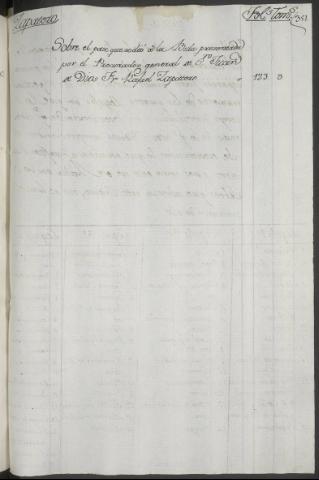 Zapatero
Fol.s Tom.s
351
Sobre el pase que se dió á la Bula presentada
por el Procurador general de S.n Juan
de Dios Fr. Rafael Zapatero 123 3